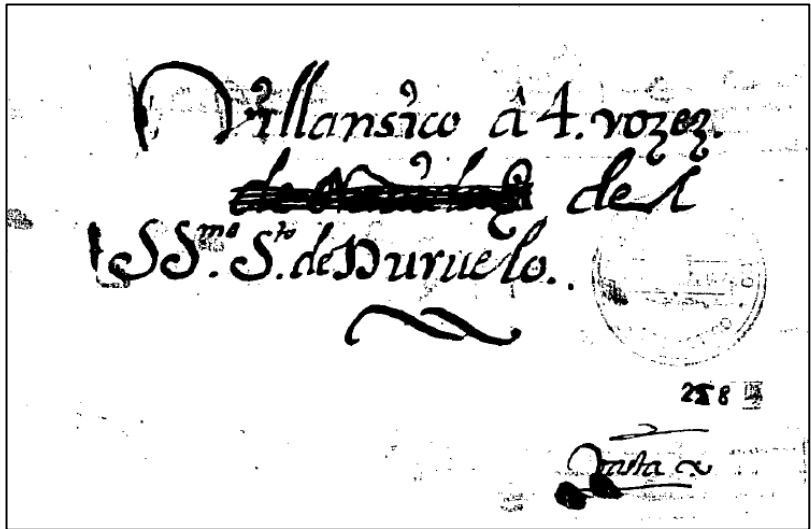 Villansico â 4. vozez.
del
SS.mo S.to de Duruelo.
258